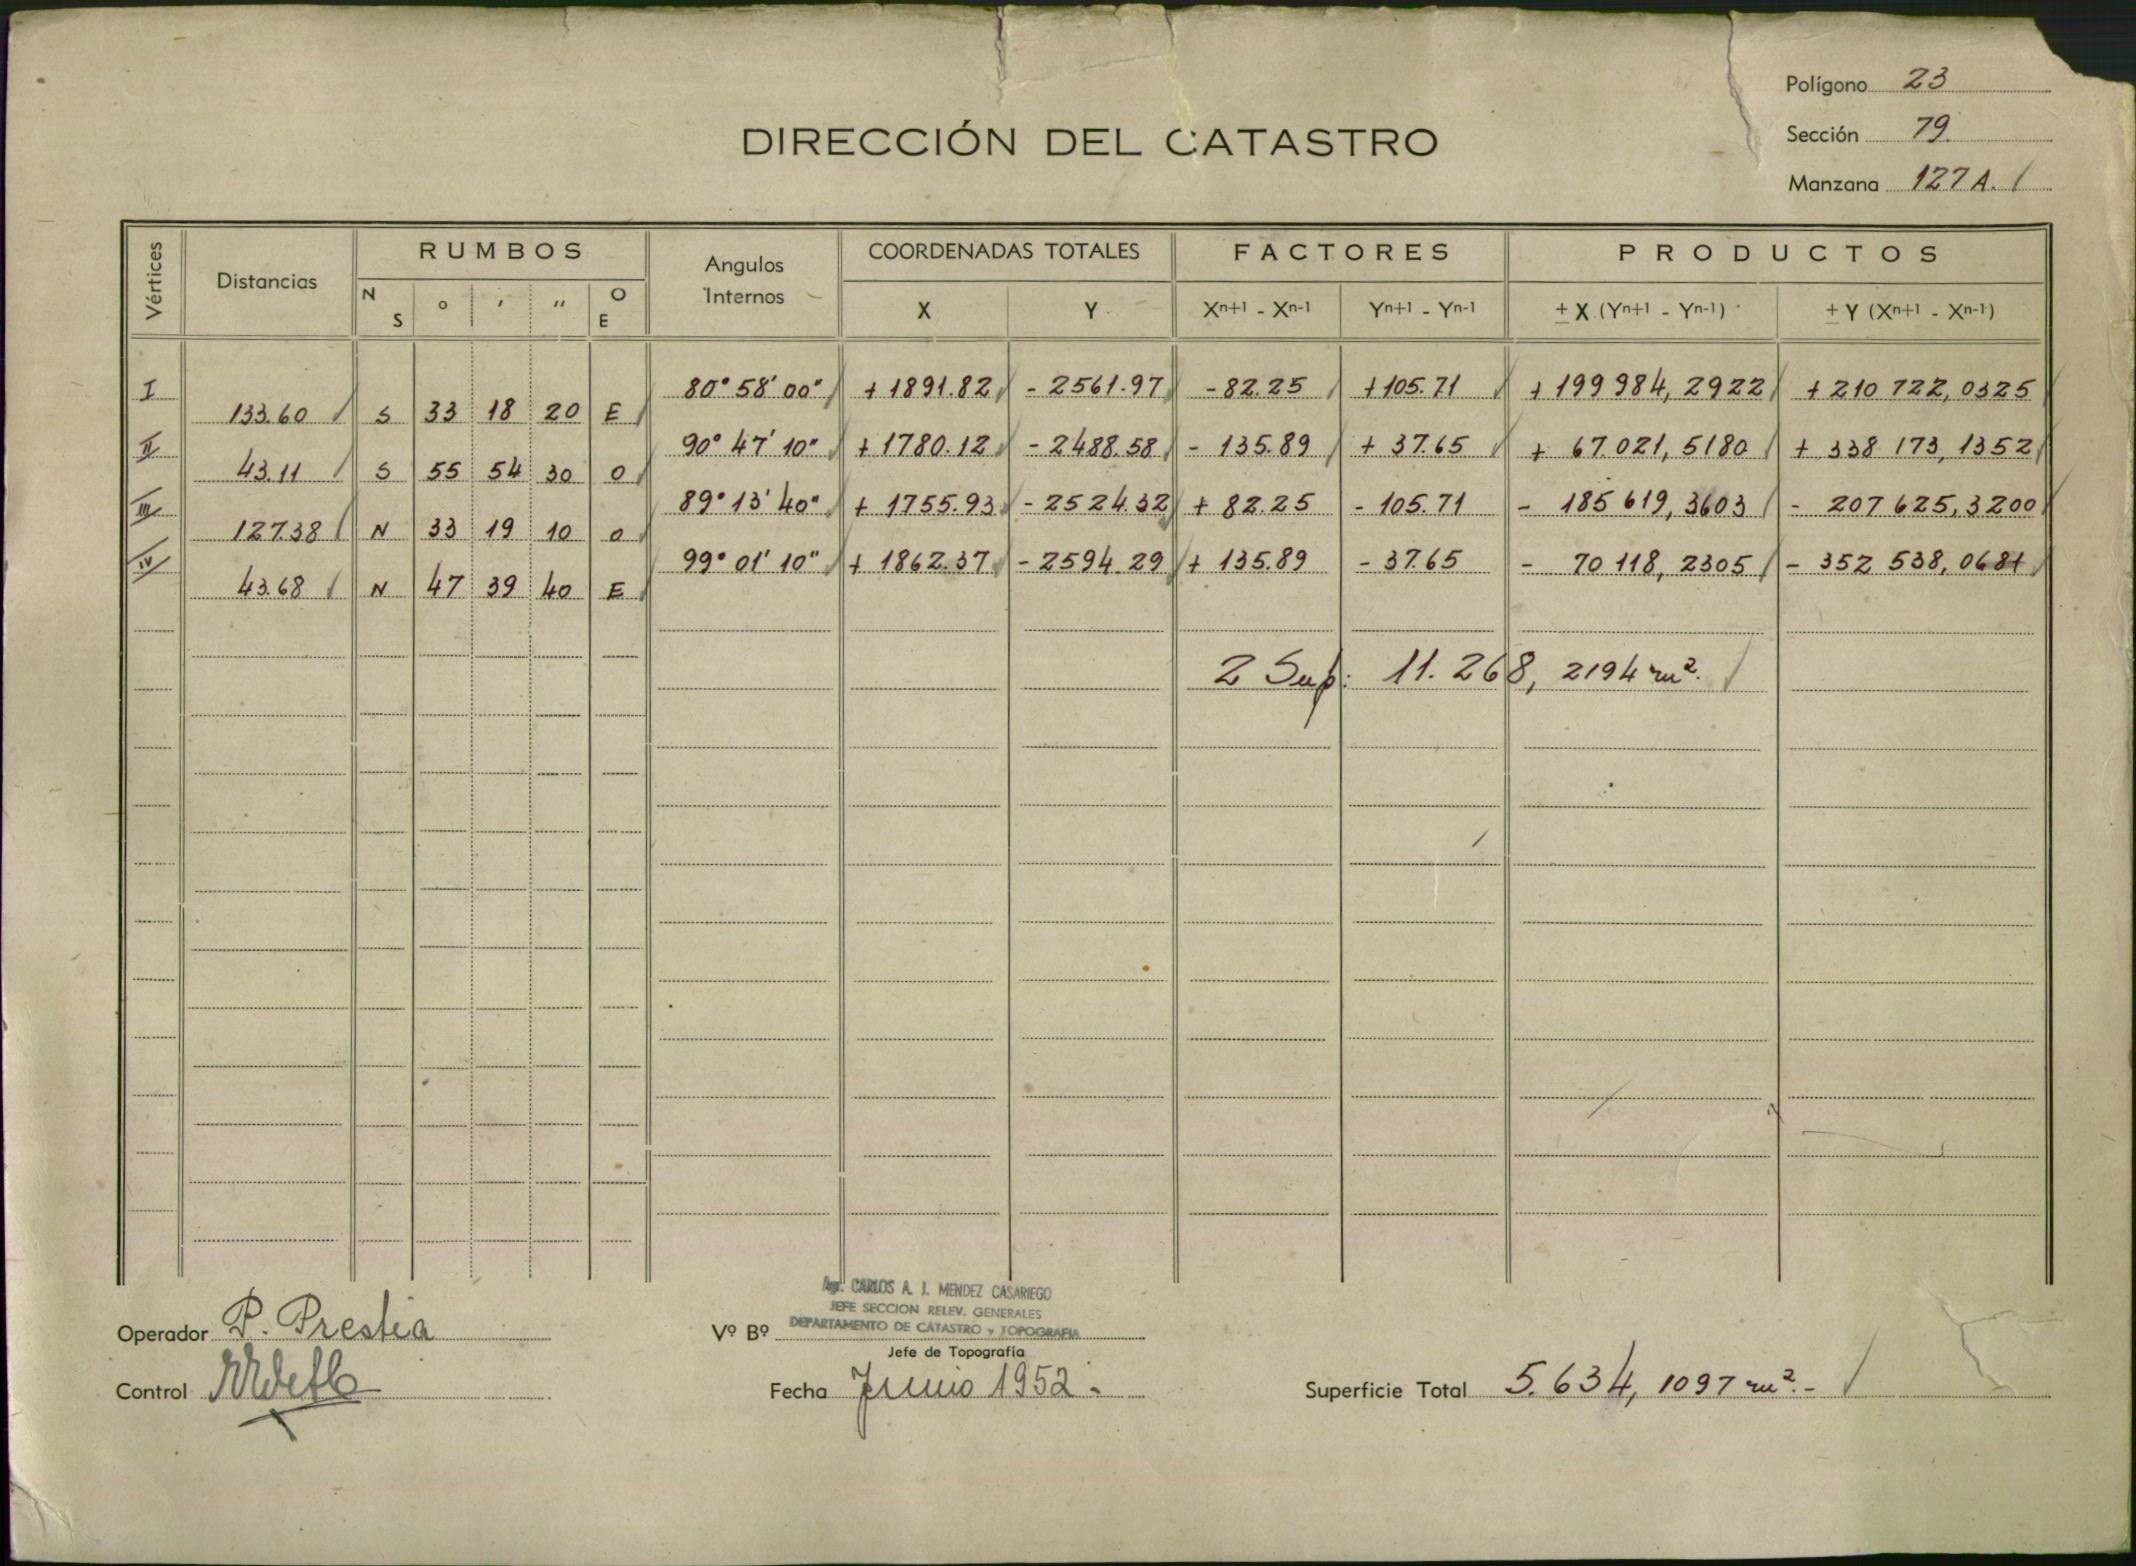 Polígono 23
DIRECCIÓN DEL CATASTRO
Sección 79.
Manzana 127 A. /
Vértices Distancias RUMBOS Angulos Internos COORDENADAS TOTALES FACTORES PRODUCTOS
N S ° ' " O E X Y Xn+1 - Xn-1 Yn+1 - Yn-1 ± X (Yn+1 - Yn-1) ± Y (Xn+1 - Xn-1)
I 80° 58' 00" + 1891.82 - 2561.97 - 82.25 + 105.71 + 199 984, 2922 + 210 722, 0325
133.60 S 33 18 20 E
II 90° 47' 10" + 1780.12 - 2488.58 - 135.89 + 37.65 + 67.021, 5180 + 338 173, 1352
43.11 S 55 54 30 O
III 89° 13' 40" + 1755.93 - 2524.32 + 82.25 - 105.71 - 185 619, 3603 - 207 625, 3200
127.38 N 33 19 10 O
IV 99° 01' 10" + 1862.37 - 2594.29 + 135.89 - 37.65 - 70 118, 2305 - 352 538, 0681
43.68 N 47 39 40 E
2 Sup: 11.268, 2194 m².
Agr. CARLOS A. J. MENDEZ CASARIEGO
JEFE SECCION RELEV. GENERALES
DEPARTAMENTO DE CATASTRO y TOPOGRAFIA
Operador P. Prestia Vº Bº
Jefe de Topografía
Control Fecha Junio 1952.- Superficie Total 5.634, 1097 m².-